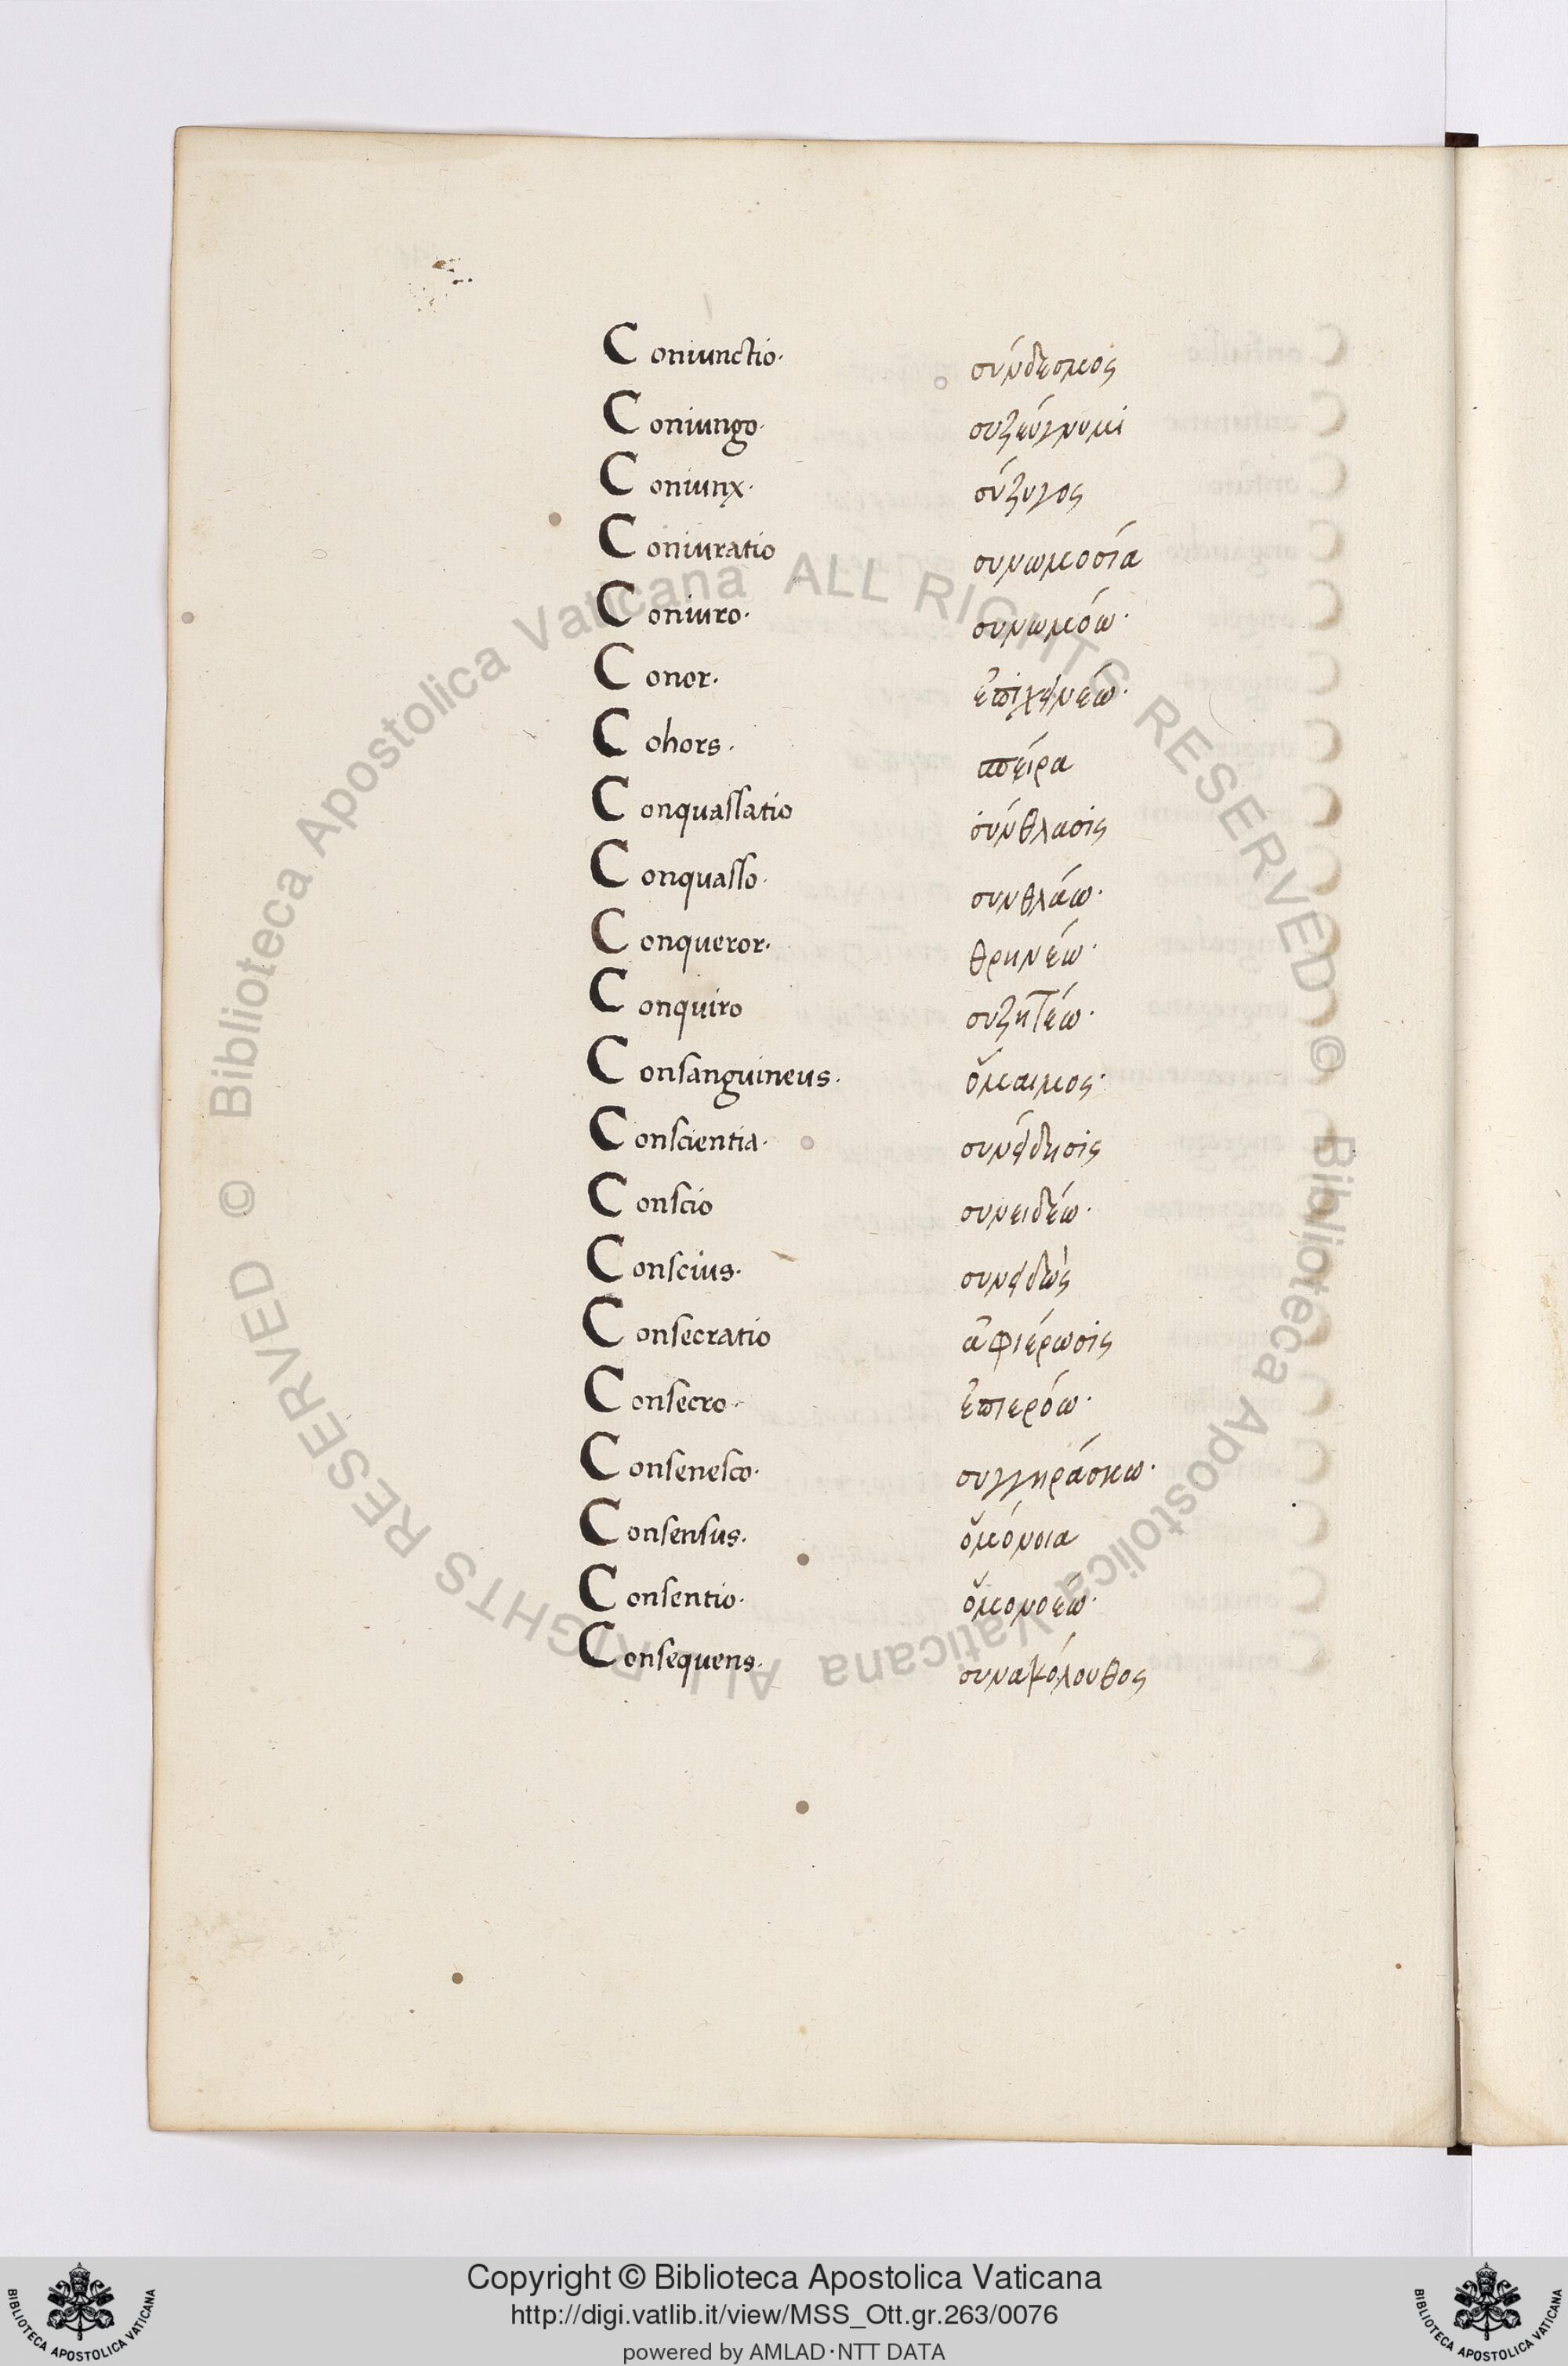 Coniunctio· σύνδεσμος
Coniungo· συζεύγνυμι
Coniunx· σύζυγος
Coniuratio συνωμοσία
Coniuro· συνωμόω·
Conor·
Cohors· σπείρα
Conquassatio σύνθλασις
Conquasso· συνθλάω·
Conqueror· θρηνέω·
Conquiro συζητέω·
Consanguineus· ὅμαιμος·
Conscientia· συνείδησις
Conscio συνειδέω·
Conscius· συνειδὼς
Consecratio ἀφιέρωσις
Consecro· ἐπιερόω·
Consenesco· συγγηράσκω·
Consensus· ὁμόνοια
Consentio· ὁμονοέω·
Consequens· συνακόλουθος
© Biblioteca Apostolica Vaticana ALL RIGHTS RESERVED
© Biblioteca Apostolica Vaticana ALL RIGHTS RESERVED
Copyright © Biblioteca Apostolica Vaticana
http://digi.vatlib.it/view/MSS_Ott.gr.263/0076
powered by AMLAD·NTT DATA
BIBLIOTECA APOSTOLICA VATICANA
BIBLIOTECA APOSTOLICA VATICANA